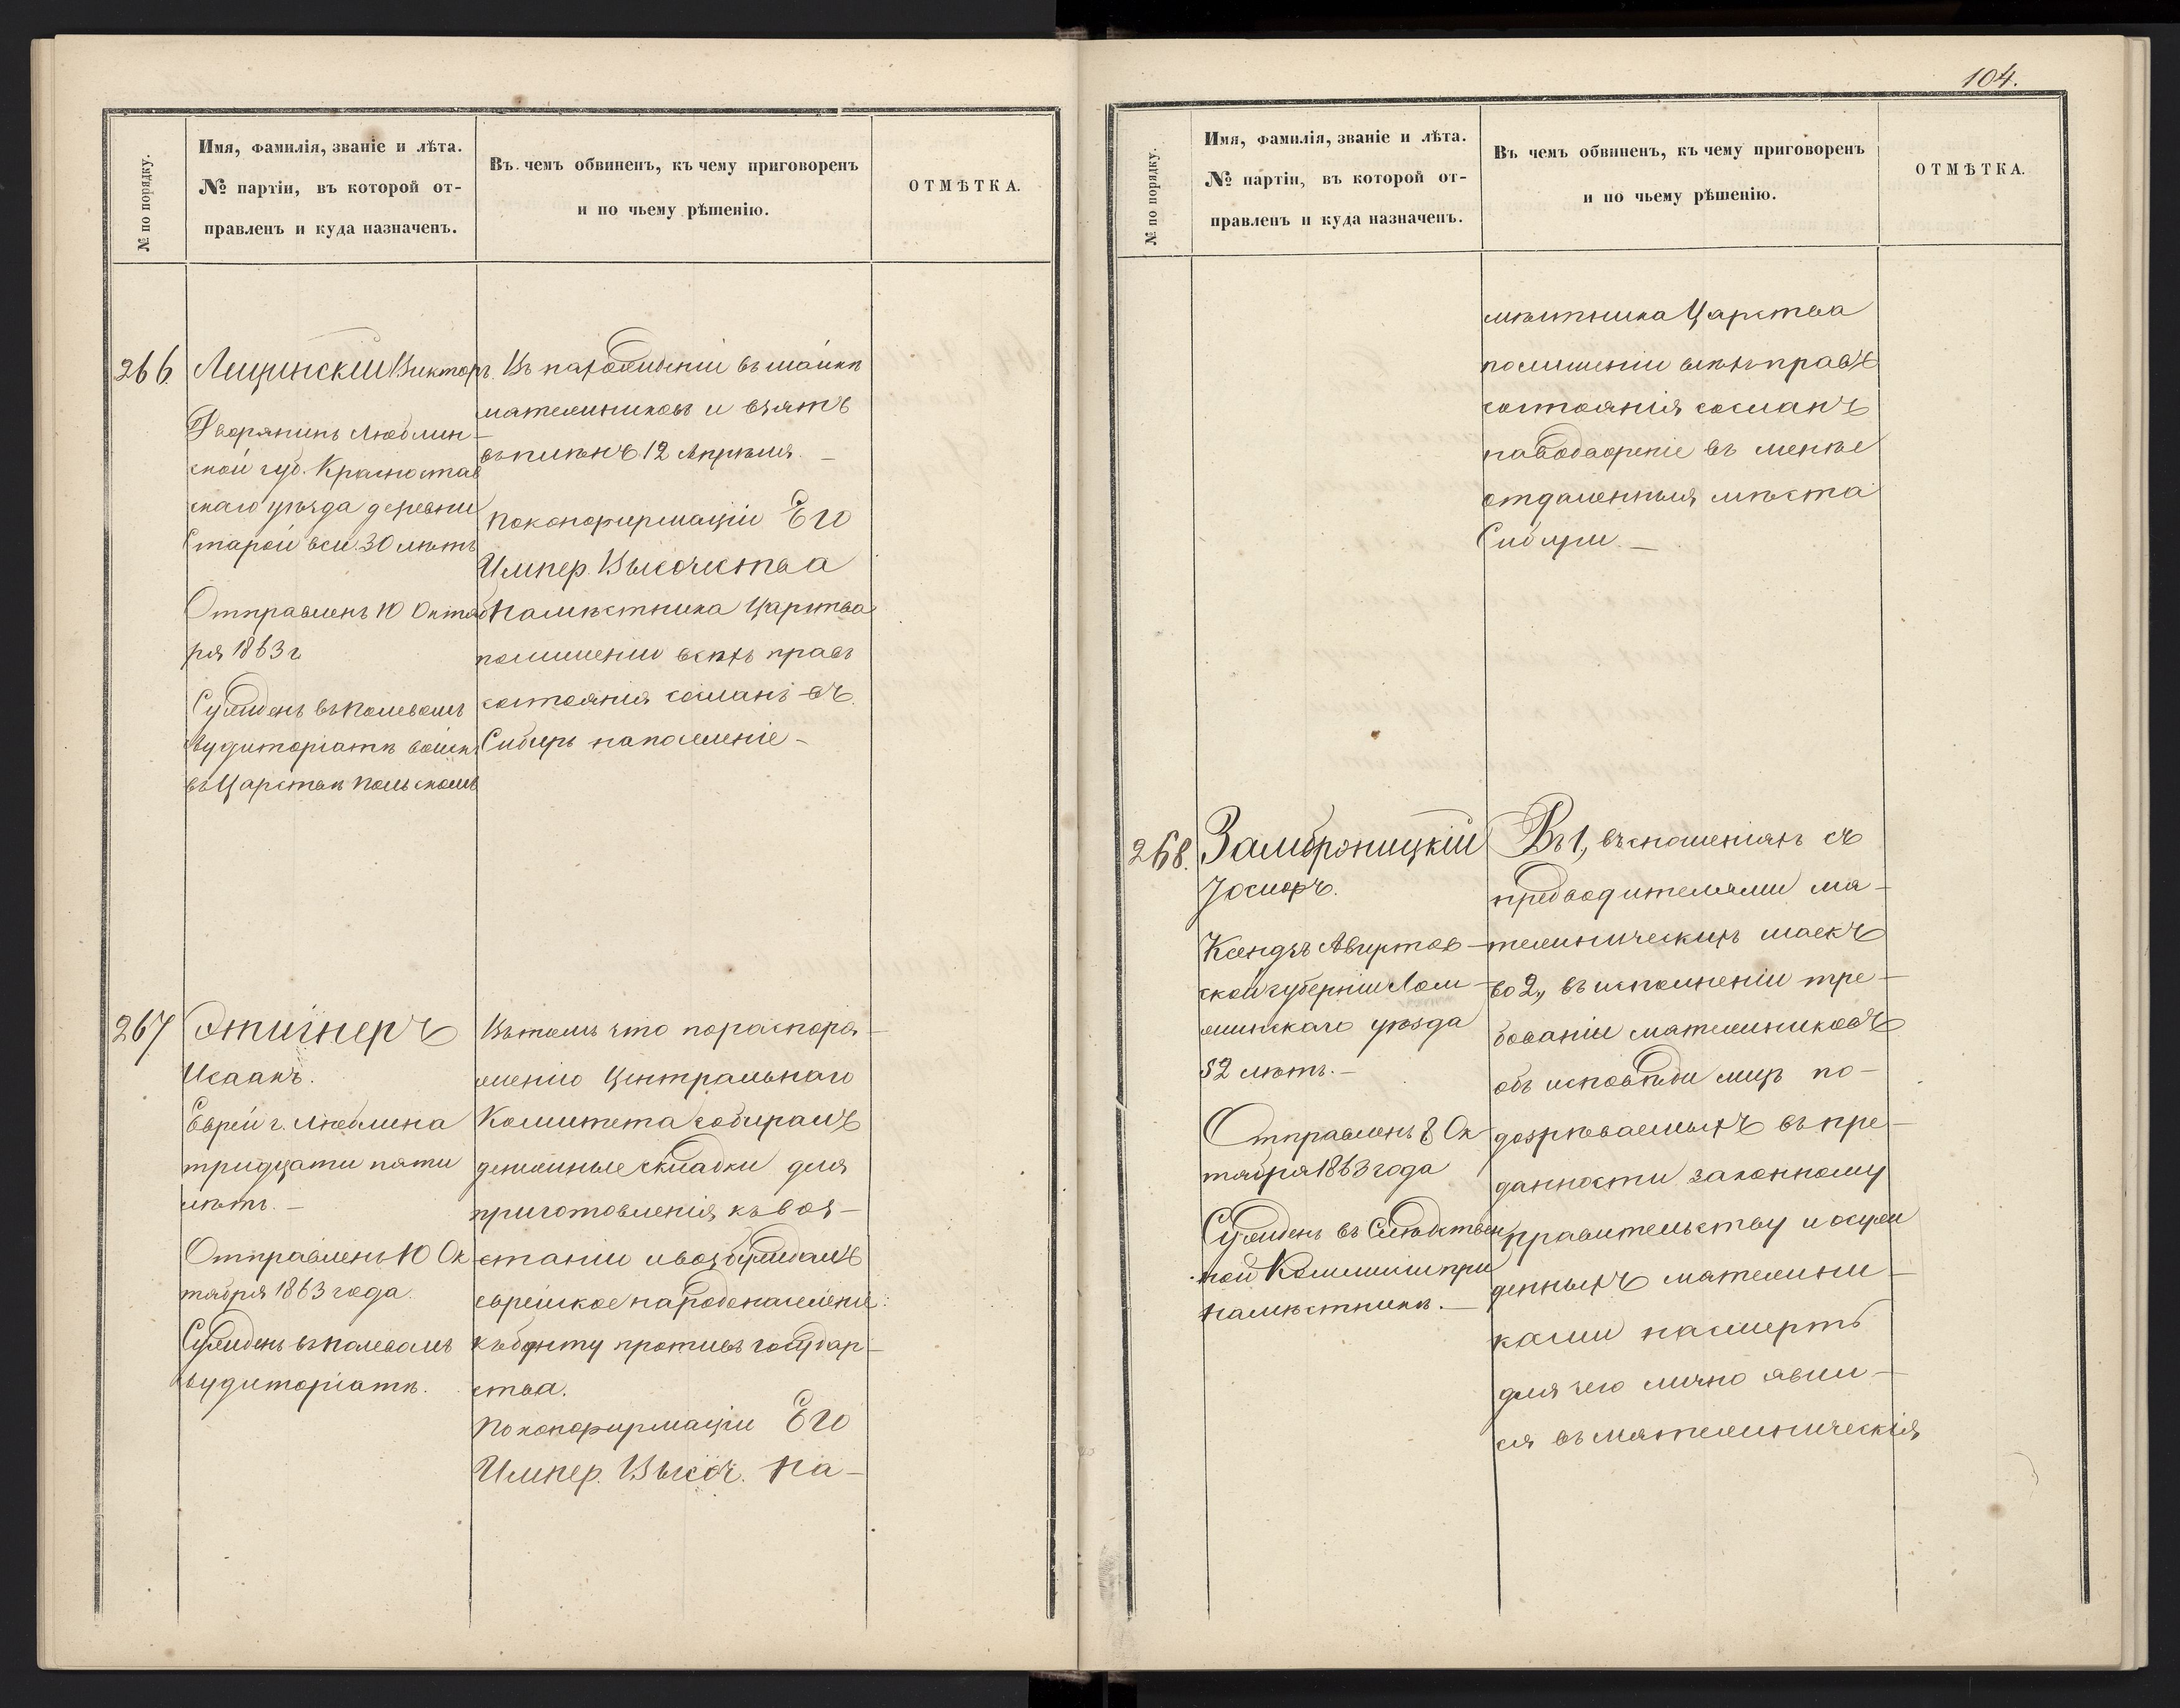 № по порядку.
Имя, фамилія, званіе и лѣта.
№ партіи, въ которой от-
правленъ и куда назначенъ.
Въ чемъ обвиненъ, къ чему приговоренъ
и по чьему рѣшенію.
ОТМѢТКА.
266
Лещинскій Викторъ.
Дворянинъ Люблин-
ской губ. Красностав
скаго уѣзда деревни
Старой вси. 30 лѣтъ
Отправленъ 10 Октяб
ря 1863 г.
Сужденъ въ Полевомъ
Аудиторіатѣ войск.
въ Царствѣ Польскомъ
Въ нахожденіи въ шайкѣ
мятежниковъ и взятъ
въ плѣнъ 12 Апрѣля. —
По конфирмаціи Его
Импер. Высочества
Намѣстника Царства
по лишеніи всѣхъ правъ
состоянія сосланъ въ
Сибирь на поселеніе —
267
Исаакъ.
Еврей г. Люблина
тридцати пяти
лѣтъ. —
Отправленъ 10 Ок
тября 1863 года.
Сужденъ въ Полевомъ
Аудиторіатѣ.
Въ томъ что по распоря-
женію Центральнаго
Комитета собиралъ
денежные складки для
приготовленія къ воз-
станію и возбуждалъ
еврейское народонаселеніе
къ бунту противъ государ-
ства.
По конфирмаціи Его
Импер. Высоч. На-
104.
№ по порядку.
Имя, фамилія, званіе и лѣта.
№ партіи, въ которой от-
правленъ и куда назначенъ.
Въ чемъ обвиненъ, къ чему приговоренъ
и по чьему рѣшенію.
ОТМѢТКА.
мѣстника Царства
по лишеніи всѣхъ правъ
состоянія сосланъ
на водвореніе въ менѣе
отдаленныя мѣста
Сибири. —
268.
Замброницкій
Іосифъ.
Ксендзъ Августов-
ской губерніи Лом-
жинскаго уѣзда
52 лѣтъ. —
Отправленъ 8 Ок
тября 1863 года
Сужденъ въ Слѣдствен
ной Коммисіи при
Намѣстникѣ. —
Въ 1, въ сношеніяхъ съ
предводителями мя-
тежническихъ шаекъ
во 2, въ исполненіи тре-
бованіи мятежниковъ
объ исповѣди лицъ по-
дозрѣваемыхъ въ пре-
данности законному
правительству и осуж
денныхъ мятежни-
ками на смерть
для чего лично явил-
ся въ мятежническія